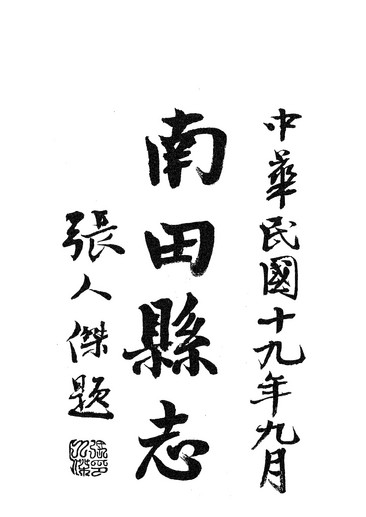 中華民國十九年九月
南田縣志
張人傑題